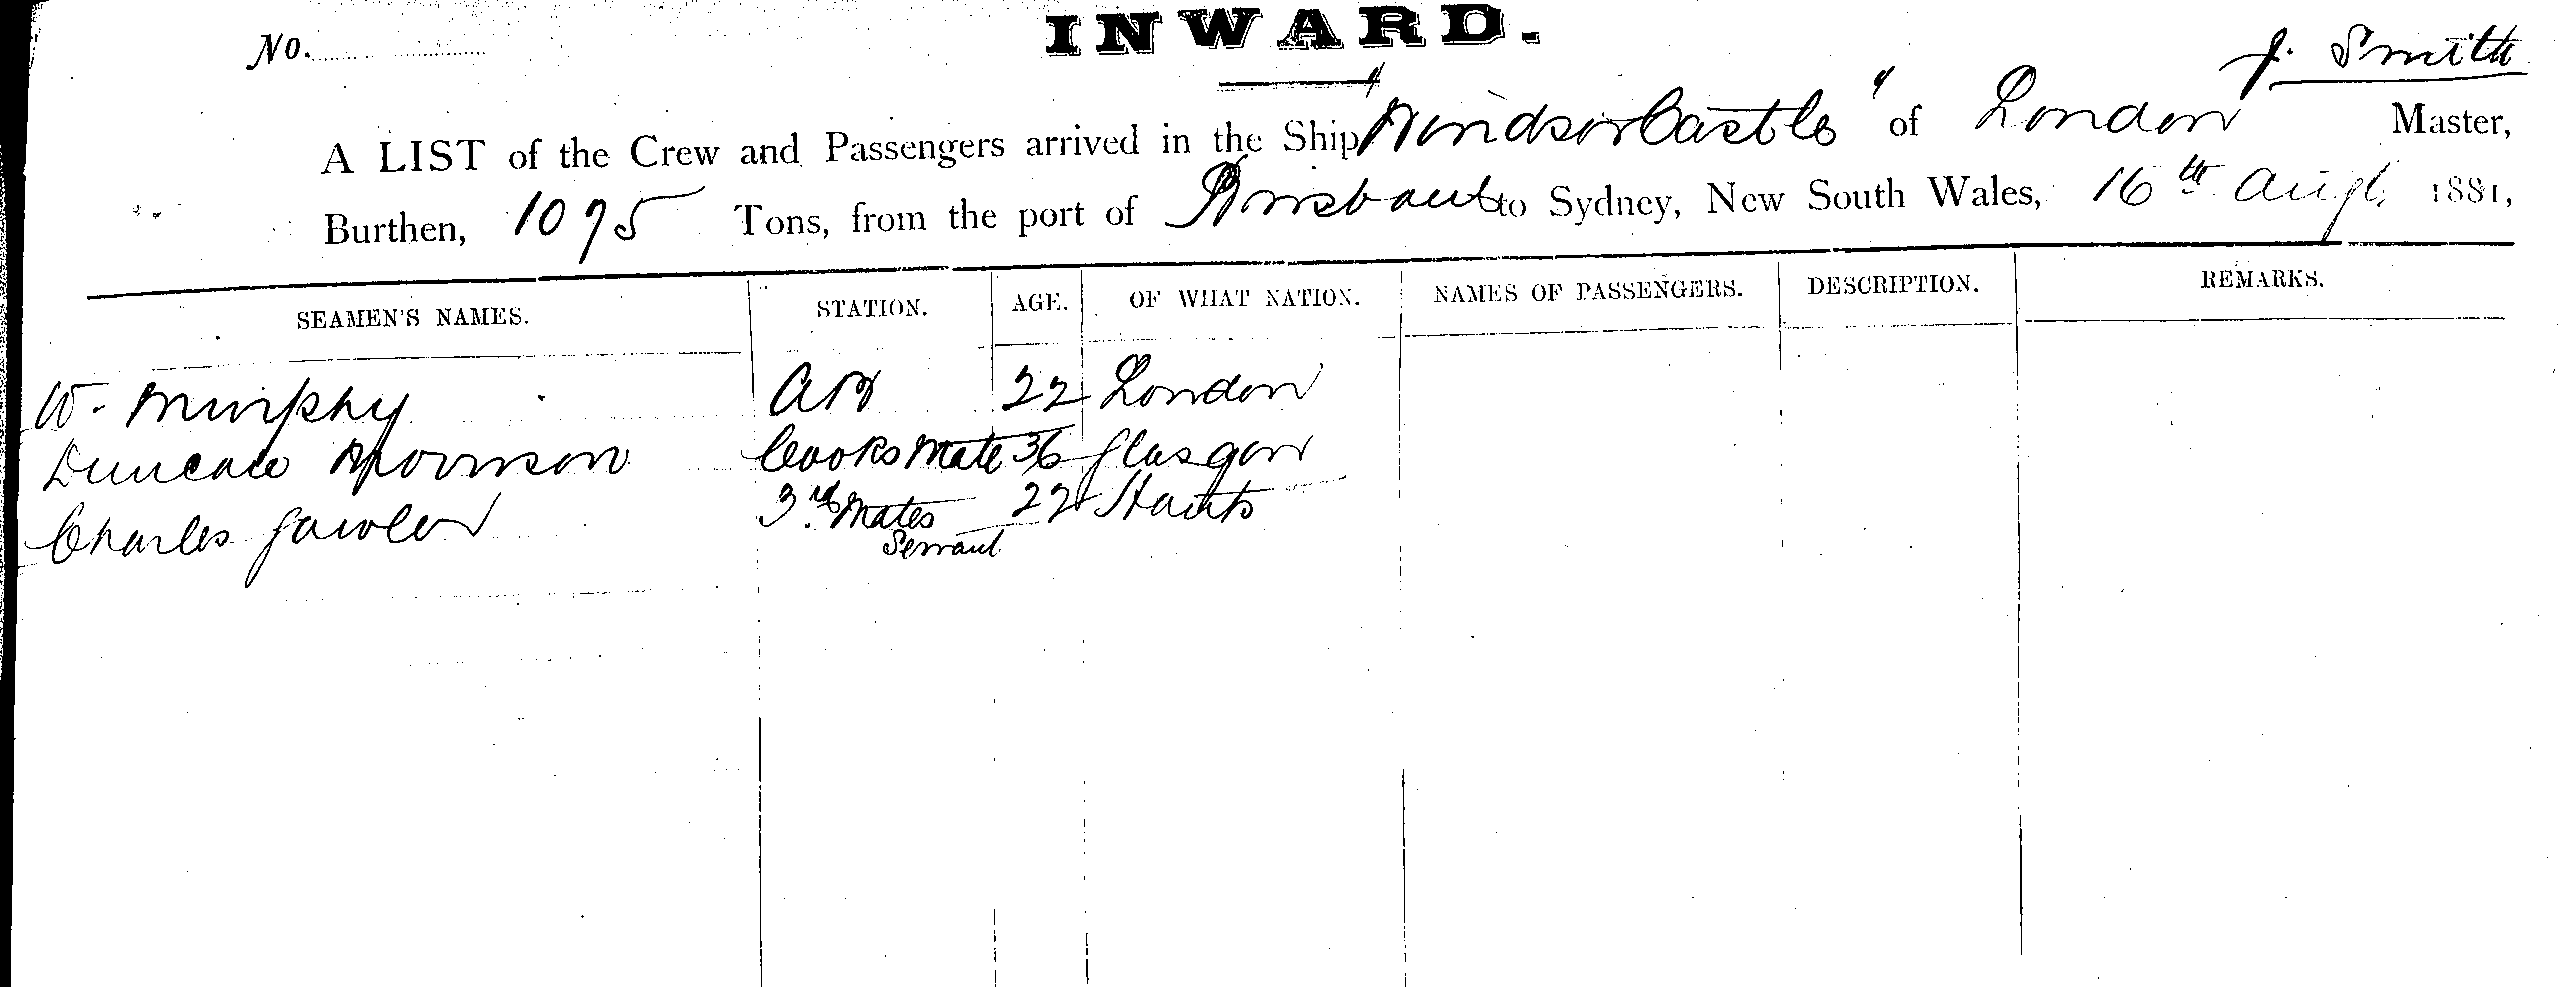 No.
INWARD.
J. Smith
A LIST of the Crew and Passengers arrived in the Ship "Windsor Castle" of London Master,
Burthen, 1075 Tons, from the port of Brisbane to Sydney, New South Wales, 16th Augt. 1881,
SEAMEN'S NAMES. STATION. AGE. OF WHAT NATION. NAMES OF PASSENGERS. DESCRIPTION. REMARKS.
W. Murphy AB 22 London
Duncan Morrison Cooks Mate 36 Glasgow
Charles Gawler 3rd Mates 22 Hants
Servant